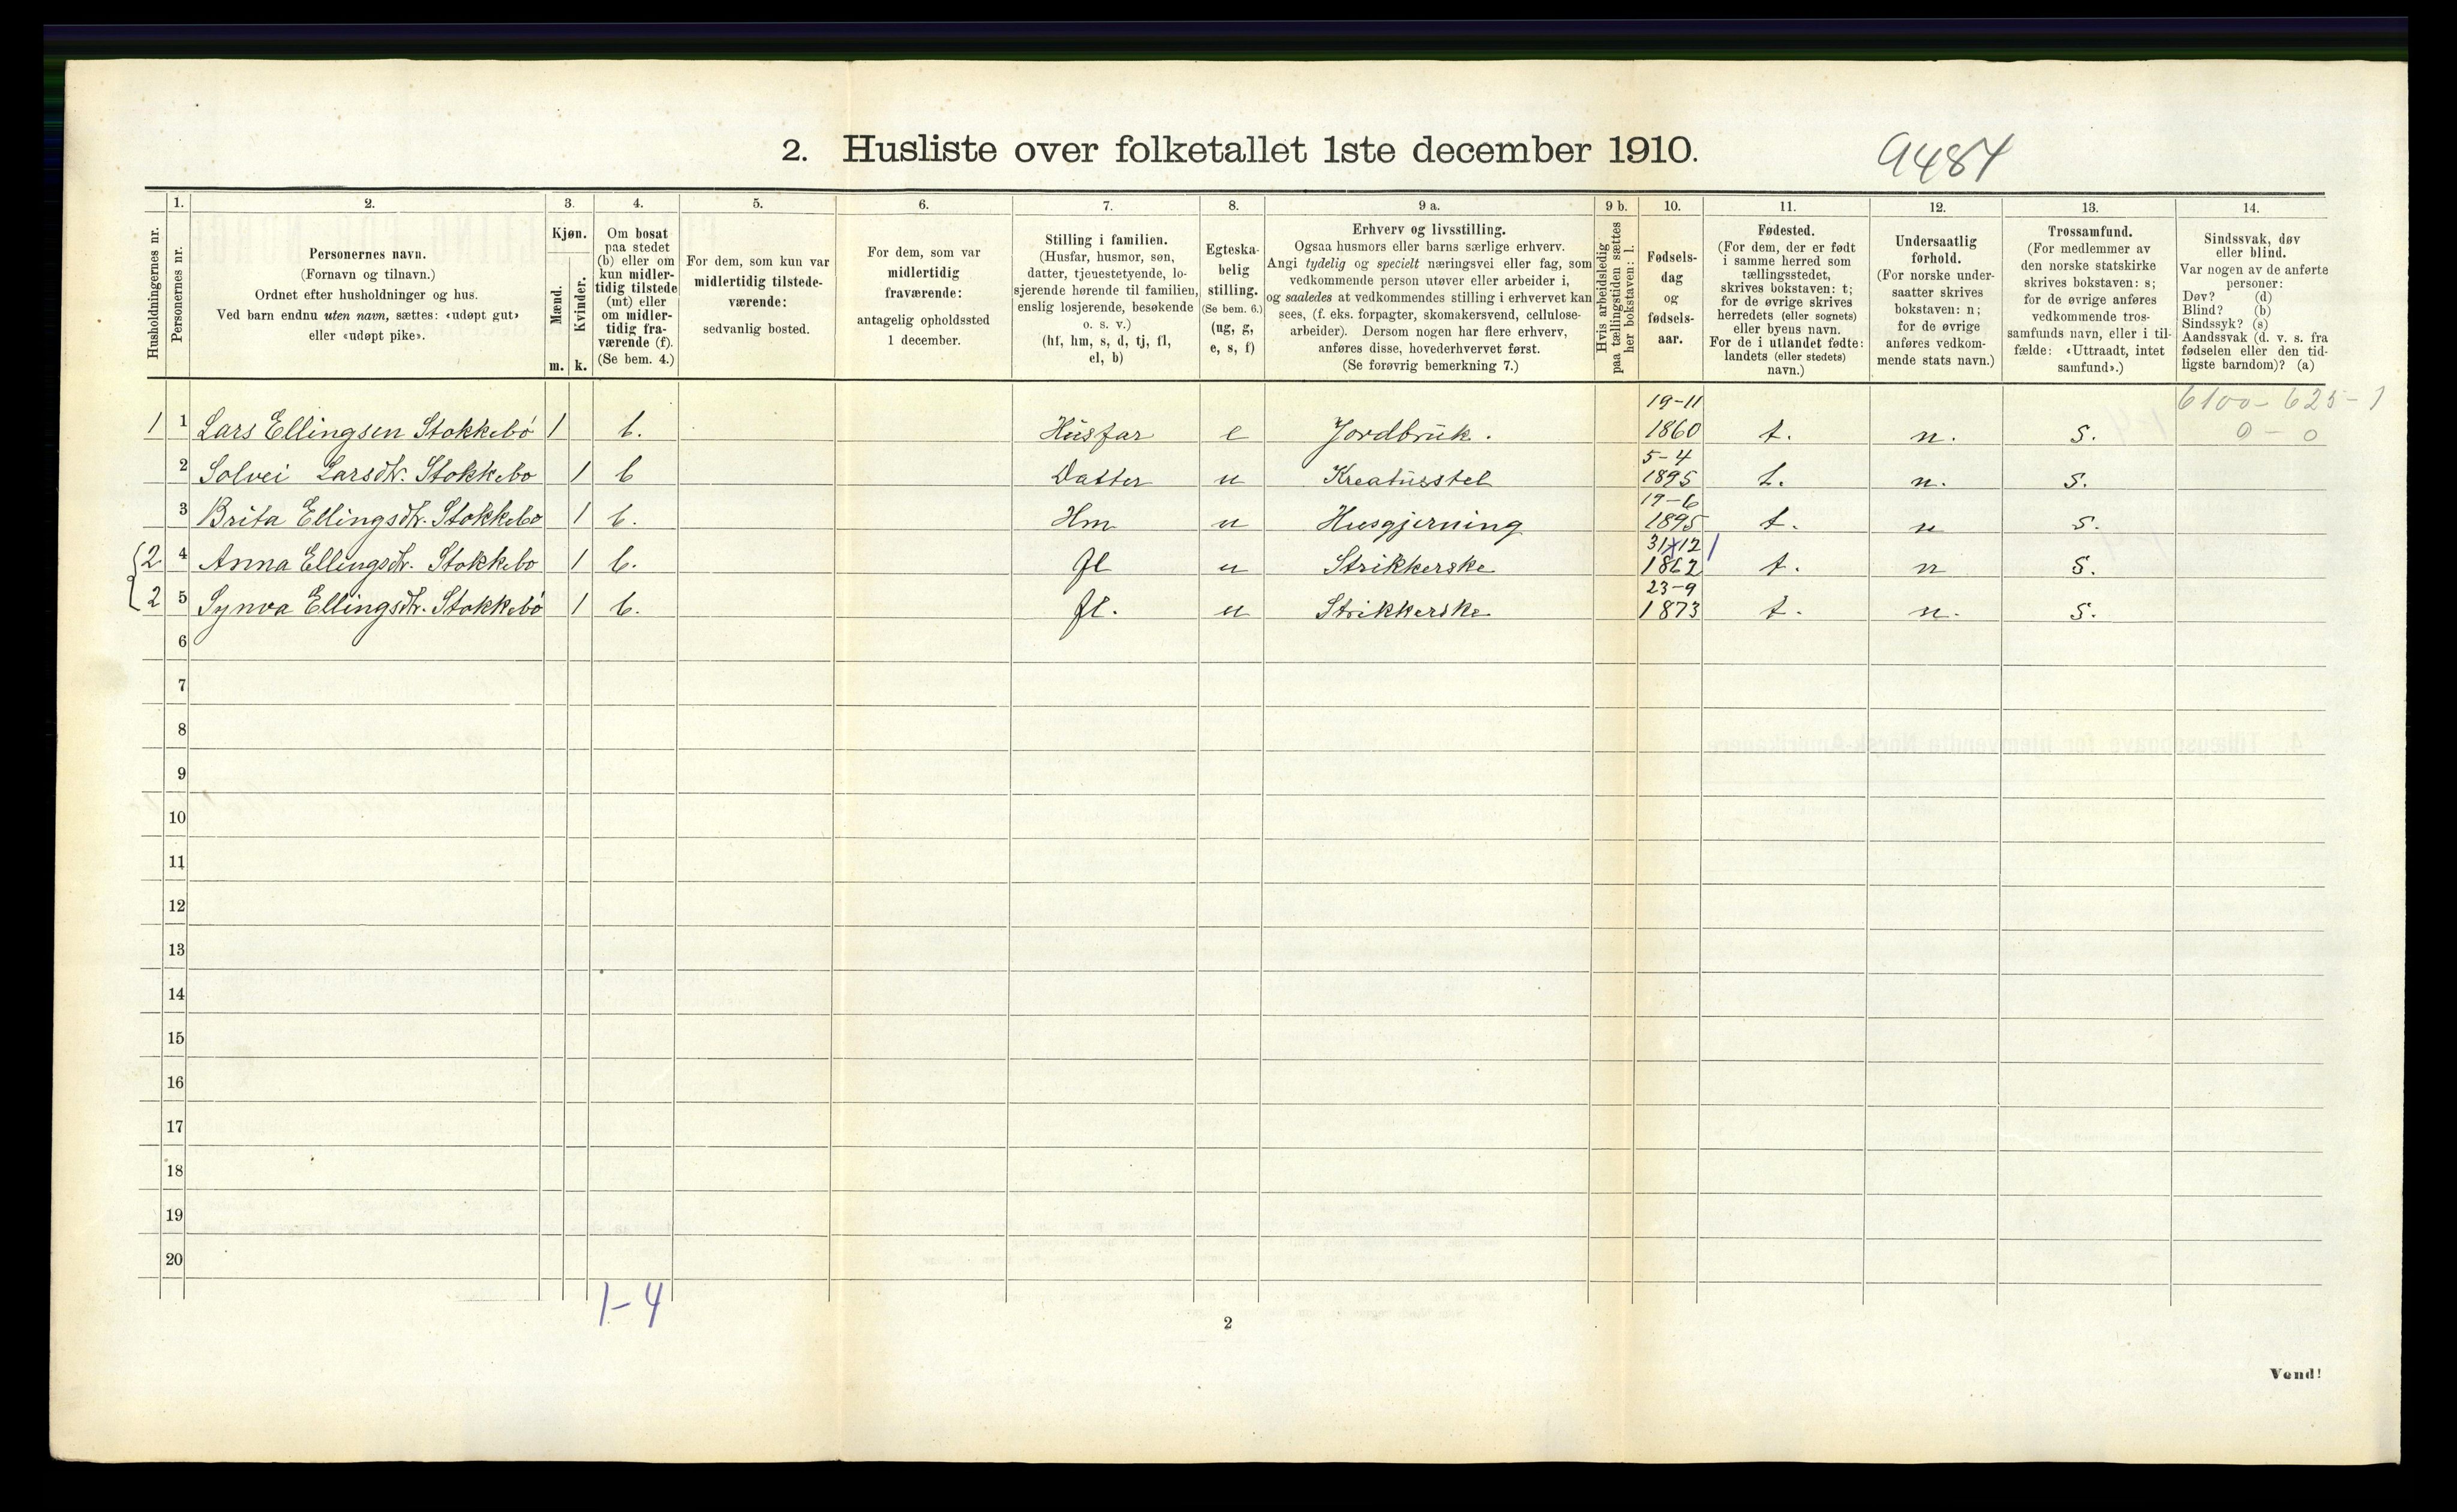 2. Husliste over folketallet 1ste december 1910.
9484
Husholdningernes nr.
1.
Personernes nr.
2.
Personernes navn.
(Fornavn og tilnavn.)
Ordnet efter husholdninger og hus.
Ved barn endnu uten navn, sættes: «udøpt gut»
eller «udøpt pike».
3.
Kjøn.
Mænd.
Kvinder.
m. k.
4.
Om bosat
paa stedet
(b) eller om
kun midler-
tidig tilstede
(mt) eller
om midler-
tidig fra-
værende (f).
(Se bem. 4.)
5.
For dem, som kun var
midlertidig tilstede-
værende:
sedvanlig bosted.
6.
For dem, som var
midlertidig
fraværende:
antagelig opholdssted
1 december.
7.
Stilling i familien.
(Husfar, husmor, søn,
datter, tjenestetyende, lo-
sjerende hørende til familien,
enslig losjerende, besøkende
o. s. v.)
(hf, hm, s, d, tj, fl,
el, b)
8.
Egteska-
belig
stilling.
(Se bem. 6.)
(ug, g,
e, s, f)
9 a.
Erhverv og livsstilling.
Ogsaa husmors eller barns særlige erhverv.
Angi tydelig og specielt næringsvei eller fag, som
vedkommende person utøver eller arbeider i,
og saaledes at vedkommendes stilling i erhvervet kan
sees, (f. eks. forpagter, skomakersvend, cellulose-
arbeider). Dersom nogen har flere erhverv,
anføres disse, hovederhvervet først.
(Se forøvrig bemerkning 7.)
9 b.
Hvis arbeidsledig
paa tællingstiden sættes
her bokstaven: l.
10.
Fødsels-
dag
og
fødsels-
aar.
11.
Fødested.
(For dem, der er født
i samme herred som
tællingsstedet,
skrives bokstaven: t;
for de øvrige skrives
herredets (eller sognets)
eller byens navn.
For de i utlandet fødte:
landets (eller stedets)
navn.)
12.
Undersaatlig
forhold.
(For norske under-
saatter skrives
bokstaven: n;
for de øvrige
anføres vedkom-
mende stats navn.)
13.
Trossamfund.
(For medlemmer av
den norske statskirke
skrives bokstaven: s;
for de øvrige anføres
vedkommende tros-
samfunds navn, eller i til-
fælde: «Uttraadt, intet
samfund».)
14.
Sindssvak, døv
eller blind.
Var nogen av de anførte
personer:
Døv? (d)
Blind? (b)
Sindssyk? (s)
Aandssvak (d. v. s. fra
fødselen eller den tid-
ligste barndom)? (a)
6100-625-1
0-0
1 1 Lars Ellingsen Stokkebø 1 b. Husfar e Jordbruk. 19-11 1860 t. n. s.
2 Solvei Larsdtr. Stokkebo 1 b Datter u Kreaturstel 5-4 1895 t. n. s.
3 Brita Ellingsdtr. Stokkebo 1 b. Hm u Husgjerning 19-6 1895 t. n s.
2 4 Anna Ellingsdtr. Stokkebo 1 b. fl u Strikkerske 31-12 1862 t. n s.
2 5 Synva Ellingsdtr. Stokkebø 1 b. fl. u Strikkerske 23-9 1873 t. n. s.
6
7
8
9
10
11
12
13
14
15
16
17
18
19
20
1-4
2
Vend!